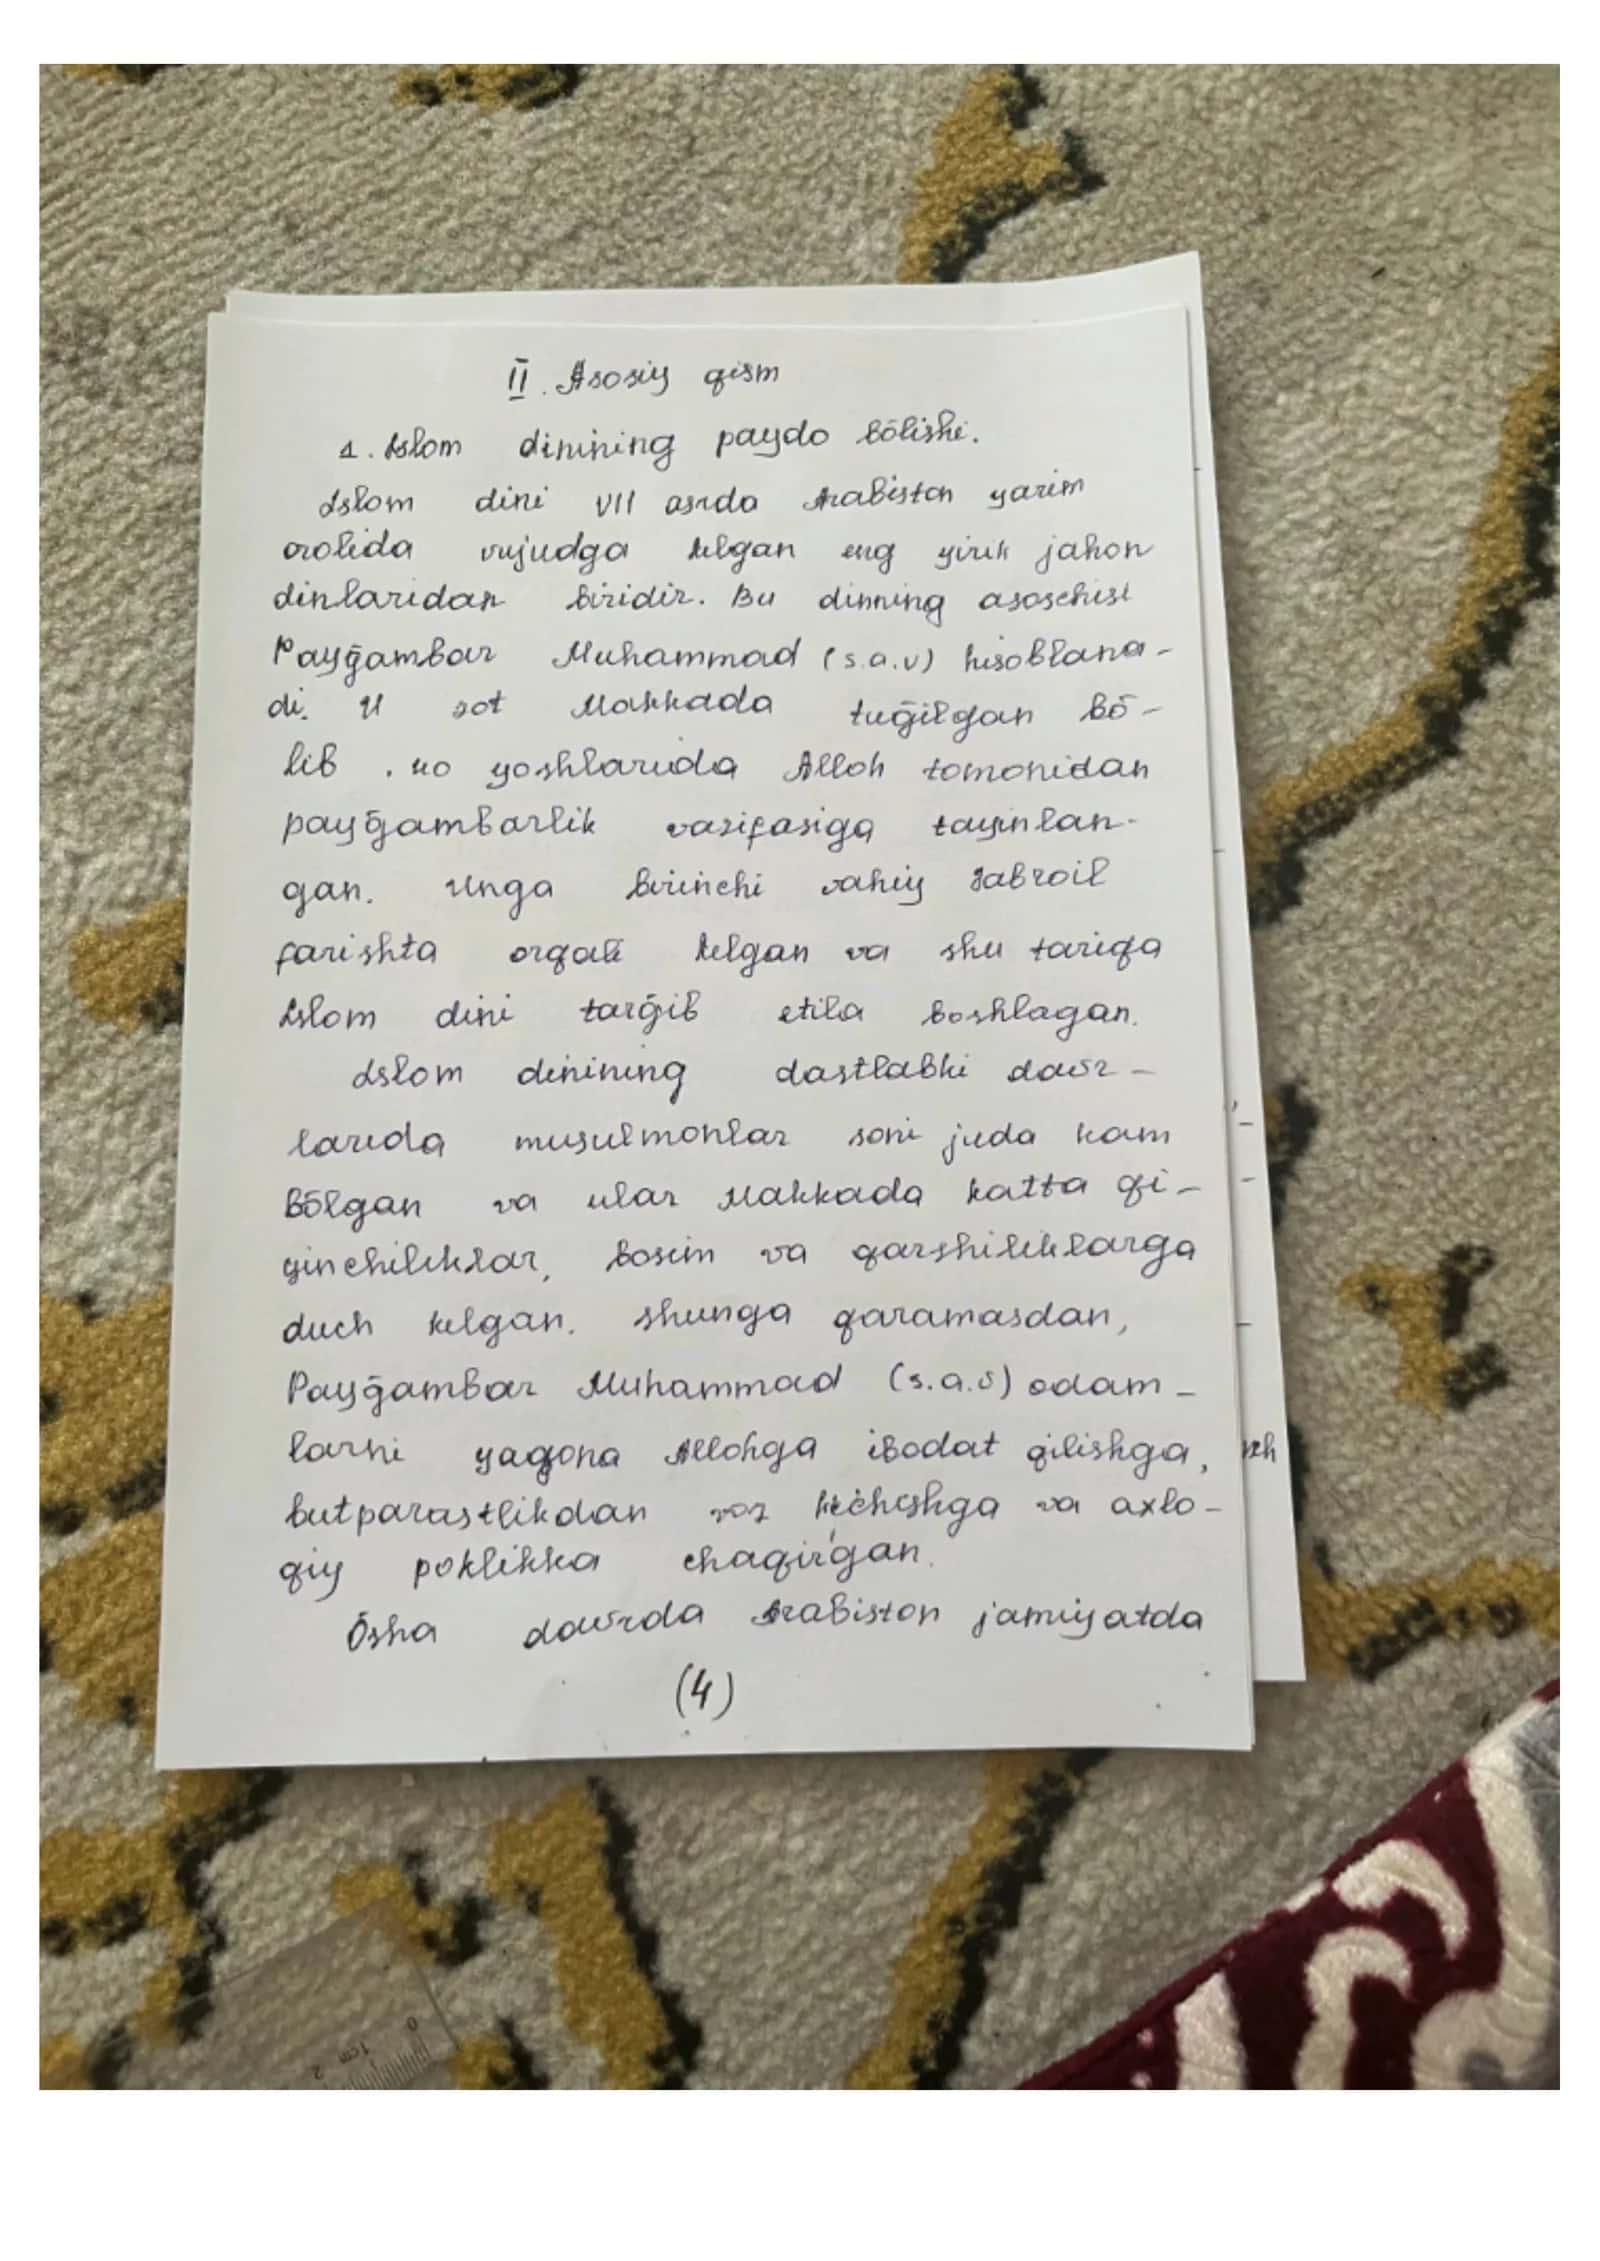 II. Asosiy qism
1. Islom dinining paydo bōlishi.
Islom dini VII asrda Arabiston yarim
orolida vujudga kelgan eng yirik jahon
dinlaridan biridir. Bu dinning asoschisi
Payḡambar Muhammad (s.a.v) hisoblana-
di. U zot Makkada tuḡilgan bō-
lib, 40 yoshlarida Alloh tomonidan
payḡambarlik vazifasiga tayinlan-
gan. Unga birinchi vahiy Jabroil
farishta orqali kelgan va shu tariqa
Islom dini tarḡib etila boshlagan.
Islom dinining dastlabki davr-
larida musulmonlar soni juda kam
bōlgan va ular Makkada katta qi-
yinchiliklar, bosim va qarshiliklarga
duch kelgan. Shunga qaramasdan,
Payḡambar Muhammad (s.a.v) odam-
larni yagona Allohga ibodat qilishga,
butparastlikdan voz kechishga va axlo-
qiy poklikka chaqirgan.
Ōsha davrda Arabiston jamiyatda
(4)
0
1cm
2